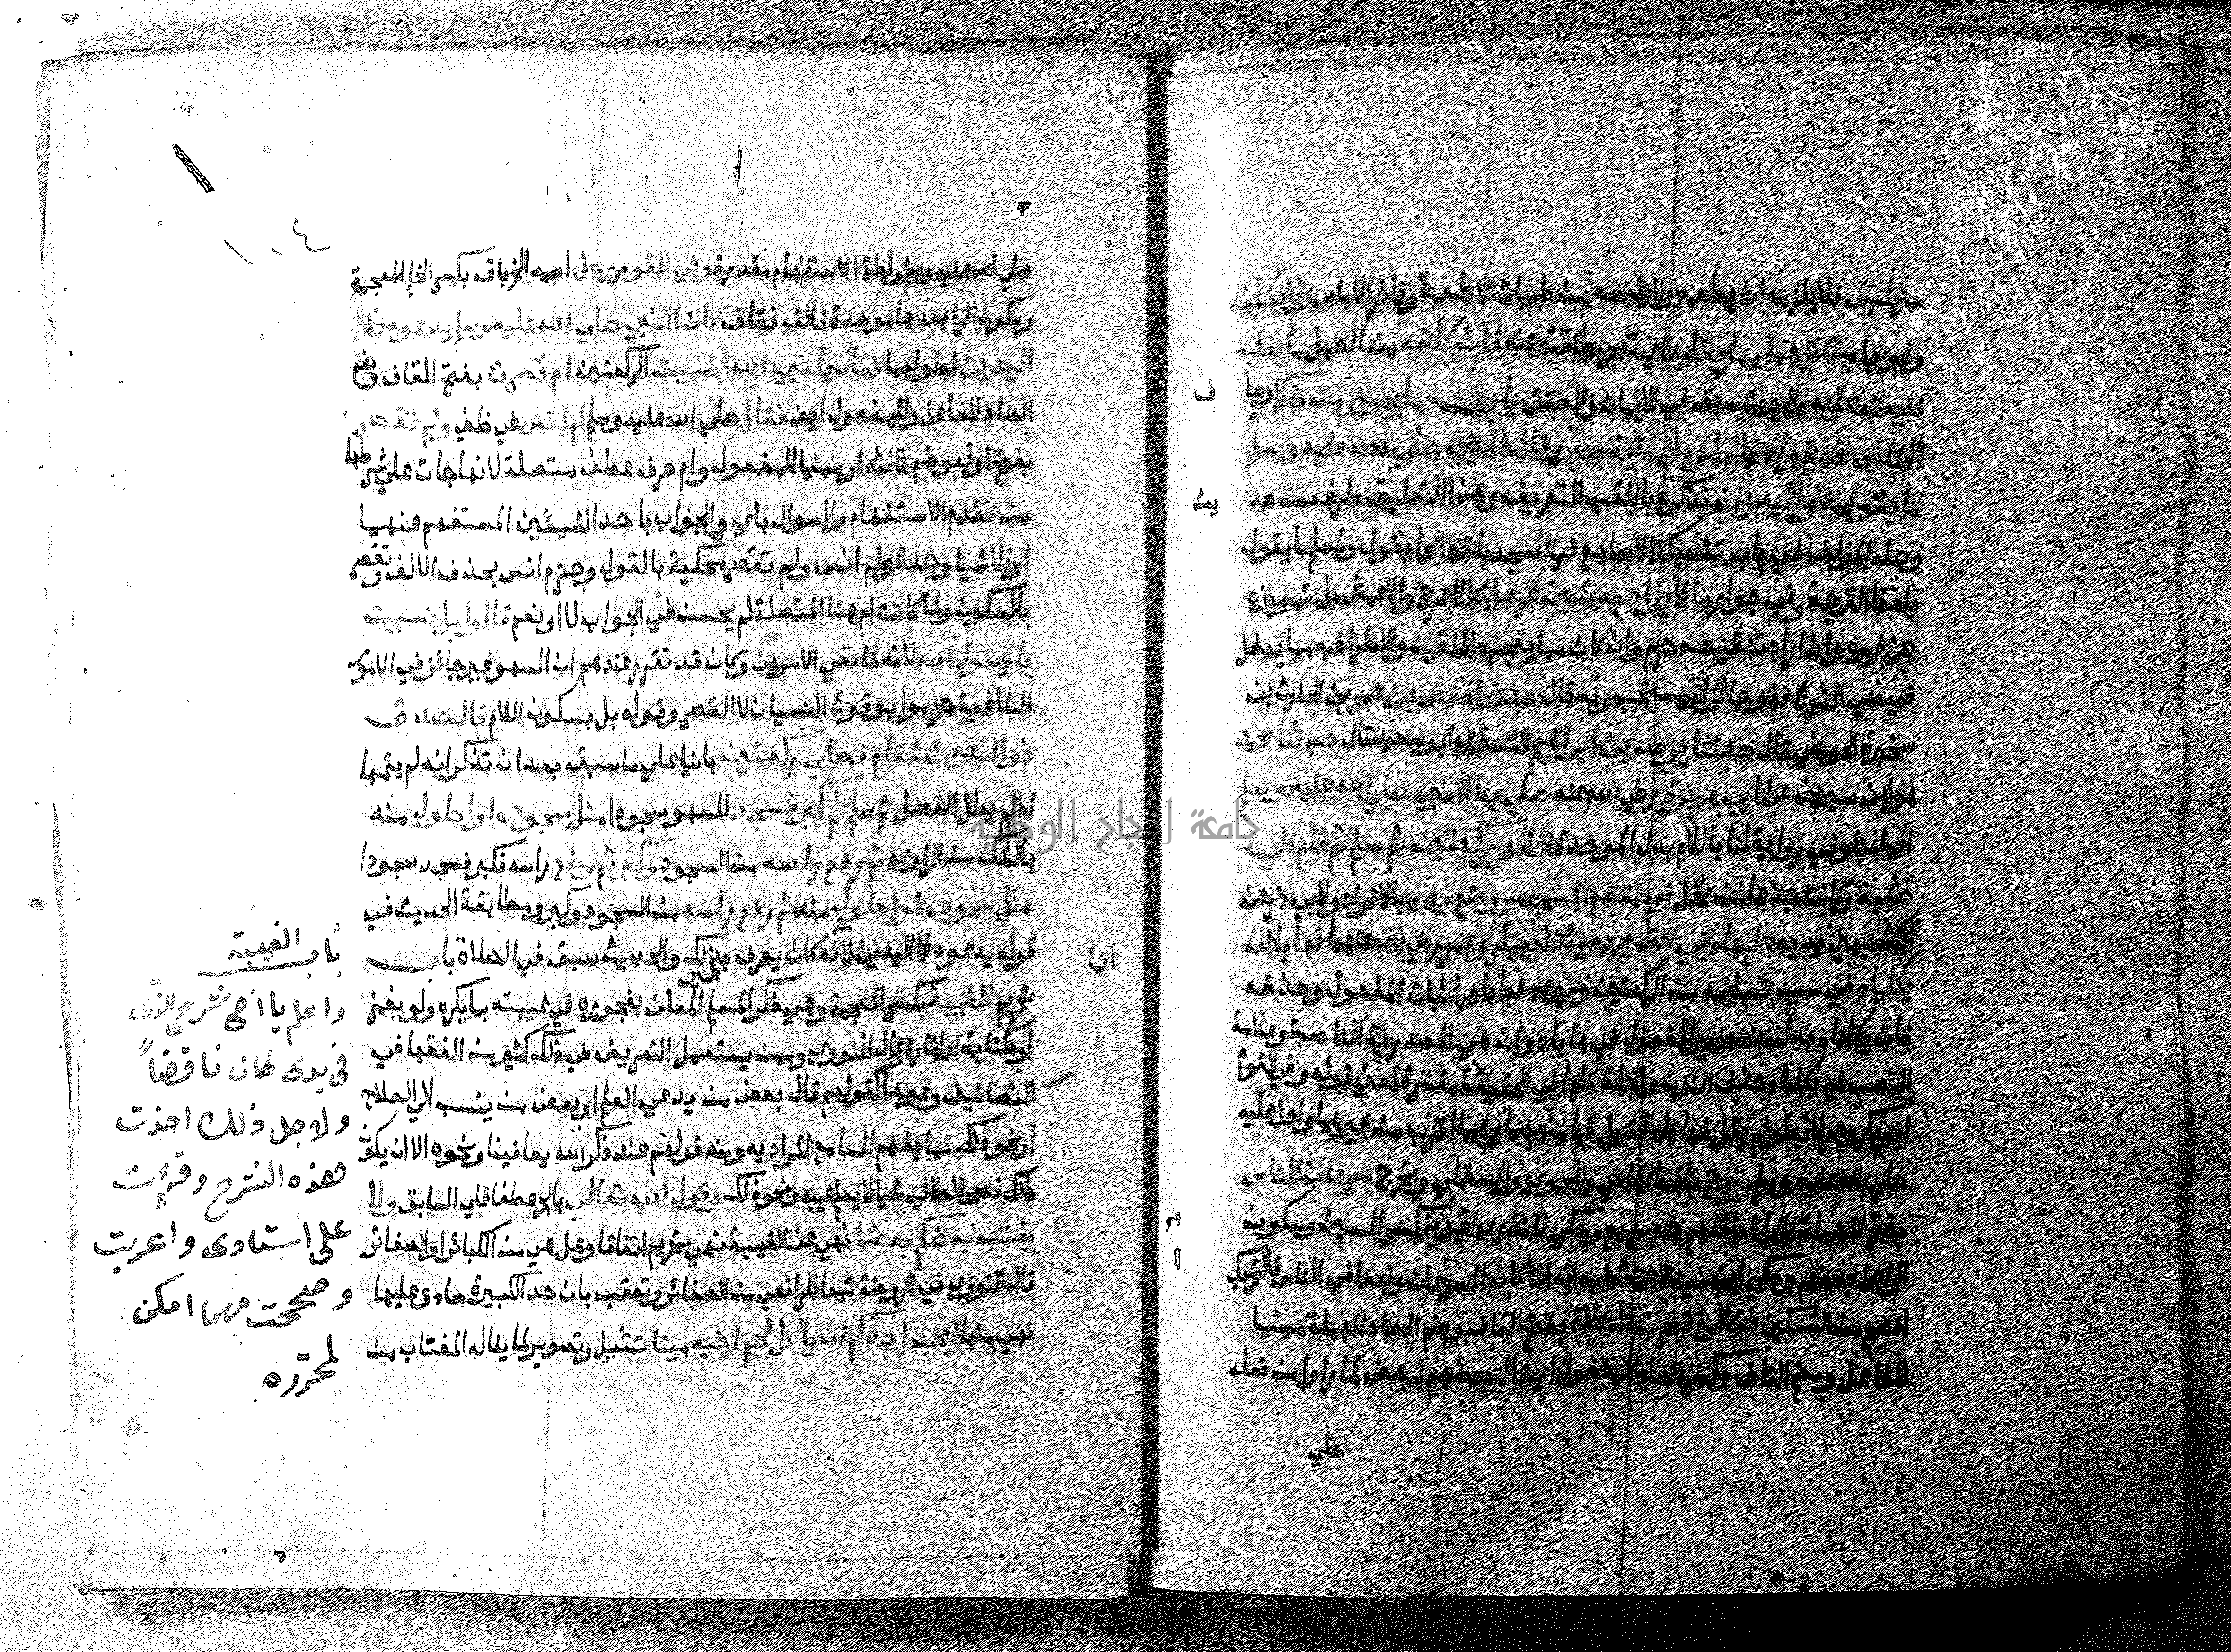 مما يلبس فلا يلزمه ان يطعمه ولا يلبسه من طيبات الاطعمة وفاخر اللباس ولا يكلفه
وجوبا من العمل ما يغلبه اي تعجز طاقته عنه فان كلفه من العمل ما يغلبه
فليعنه عليه والحديث سبق في الايمان والعتق باب ما يجوز من ذكر
الناس نحو قولهم الطويل والقصير وقال النبي صلي الله عليه وسلم
ما يقول ذو اليدين فذكره باللقب للتعريف وهذا التعليق طرف من حد
يث
وصله المولف في باب تشبيك الاصابع في المسجد بلفظ اكما يقول ولمسلم ما يقول
بلفظ الترجمة وفي جواز ما لا يراد به شين الرجل كالاعرج والاعمش بل تمييزه
عن غيره وان اراد تنقيصه حرم وان كان مما يعجب الملقب ولا اطرا فيه مما يدخل
في نهي الشرع فهو جائز او مستحب وبه قال حدثنا حفص بن عمر بن الحارث بن
سخبرة الحوضي قال حدثنا يزيد بن ابراهيم التستري ابو سعيد قال حدثنا محمد
هو ابن سيرين عن ابي هريرة رضي الله عنه صلي بنا النبي صلي الله عليه وسلم
وفي رواية لنا باللام بدل الموحدة الظهر ركعتين ثم سلم ثم قام الي
خشبة وكانت جذعا من نخل في مقدم المسجد ووضع يده بالافراد ولابي ذر عن
الكشميهني يديه عليها وفي القوم يومئذ ابو بكر وعمر رضي الله عنهما فهابا ان
يكلماه في سبب تسليمه من الركعتين وروي فهاباه باثبات المفعول وحذفه
فان يكلماه بدل من ضمير المفعول في هاباه وان هي المصدرية الناصبة وعلامة
النصب في يكلماه حذف النون والجملة كلها في الحقيقة مفسرة لمعني قوله وفي القوم
ابو بكر وعمر لانه لو لم يقل فهاباه لقيل فما منعهما وهما اقرب من غيرهما وادل عليه
صلي الله عليه وسلم وخرج بلفظ الماضي والحموي والمستملي ويخرج سرعان الناس
بفتح المهملة والراء اوائلهم جمع سريع وحكي المنذري تجويز كسر السين وسكون
الراعن بعضهم وحكي ابن سيده عن ثعلب انه اذا كان السرعان وصفا في الناس فالتحريك
افصح من التسكين فقالوا قصرت الصلاة بفتح القاف وضم الصاد المهملة مبنيا
للفاعل وبضم القاف وكسر الصاد للمفعول اي قال بعضهم لبعض لما راوا من فعله
علي
١٠٤
صلي الله عليه وسلم واداة الاستفهام مقدرة وفي القوم رجل اسمه الخرباق بكسر الخاء المعجمة
وسكون الرا بعدها موحدة فالف فقاف كان النبي صلي الله عليه وسلم يدعوه ذا
اليدين لطولهما فقال يا نبي الله انسيت الركعتين ام قصرت بفتح القاف وضم
الصاد للفاعل وللمفعول ايضا فقال صلي الله عليه وسلم لم انس في ظني ولم تقصر
بفتح اوله وضم ثالثه او مبنيا للمفعول وام حرف عطف متصلة لانها جات علي شرطها
من تقدم الاستفهام والسوال باي والجواب باحد الشيئين المستفهم عنهما
او الاشيا وجملة لم انس ولم تقصر محكية بالقول وجزم انس بحذف الالف وتقصر
بالسكون ولما كانت ام هنا المتصلة لم يحسن في الجواب لا او نعم قالوا بل نسيت
يا رسول الله لانه لما نفي الامرين وكان قد تقرر عندهم ان السهو غير جائز في الامور
البلاغية جزموا بوقوع النسيان لا القصر وقوله بل بسكون اللام قال صدق
ذو اليدين فقام فصلي ركعتين بانيا علي ما سبقه بعد ان تذكر انه لم يتمها
اذ لم يطل الفصل ثم سلم ثم كبر فسجد للسهو سجودا مثل سجوده او اطول منه
بالشك من الراوي ثم رفع راسه من السجود وكبر ثم وضع راسه فكبر فسجد سجودا
مثل سجوده او اطول منه ثم رفع راسه من السجود وكبر ومطابقة الحديث في
قوله يدعوه ذا اليدين لانه كان يعرف بذلك والحديث سبق في الصلاة باب
تحريم الغيبة بكسر المعجمة وهي ذكر المسلم غير المعلن بفجوره في غيبته بما يكره ولو بغمز
او بكتابة او اشارة قال النووي وممن يستعمل التعريض في ذلك كثير من الفقها في
التصانيف وغيرها كقولهم قال بعض من يدعي العلم او بعض من ينسب الي الصلاح
او نحو ذلك مما يفهم السامع المراد به ومنه قولهم عند ذكر الله يعافينا ونحوه الا ان يكون
ذلك نصحا لطالب شيا لا يعلم عيبه ونحو ذلك وقول الله تعالي بالجر عطفا علي السابق ولا
يغتب بعضكم بعضا نهي عن الغيبة نهي تحريم اتفاقا وهل هي من الكبائر او الصغائر
قال النووي في الروضة تبعا للرافعي من الصغائر وتعقب بان حد الكبيرة صادق عليها
فهي منها ايحب احدكم ان ياكل لحم اخيه ميتا تمثيل وتصوير لما يناله المغتاب من
باب الغيبة
واعلم يا اخى شرح الذى
فى يدى كان ناقضاً
ولاجل ذلك اخذت
هذه الشرح وقرئت
على استادى واعربت
وصححت مهما امكن
لمحرره
جامعة النجاح الوطنية